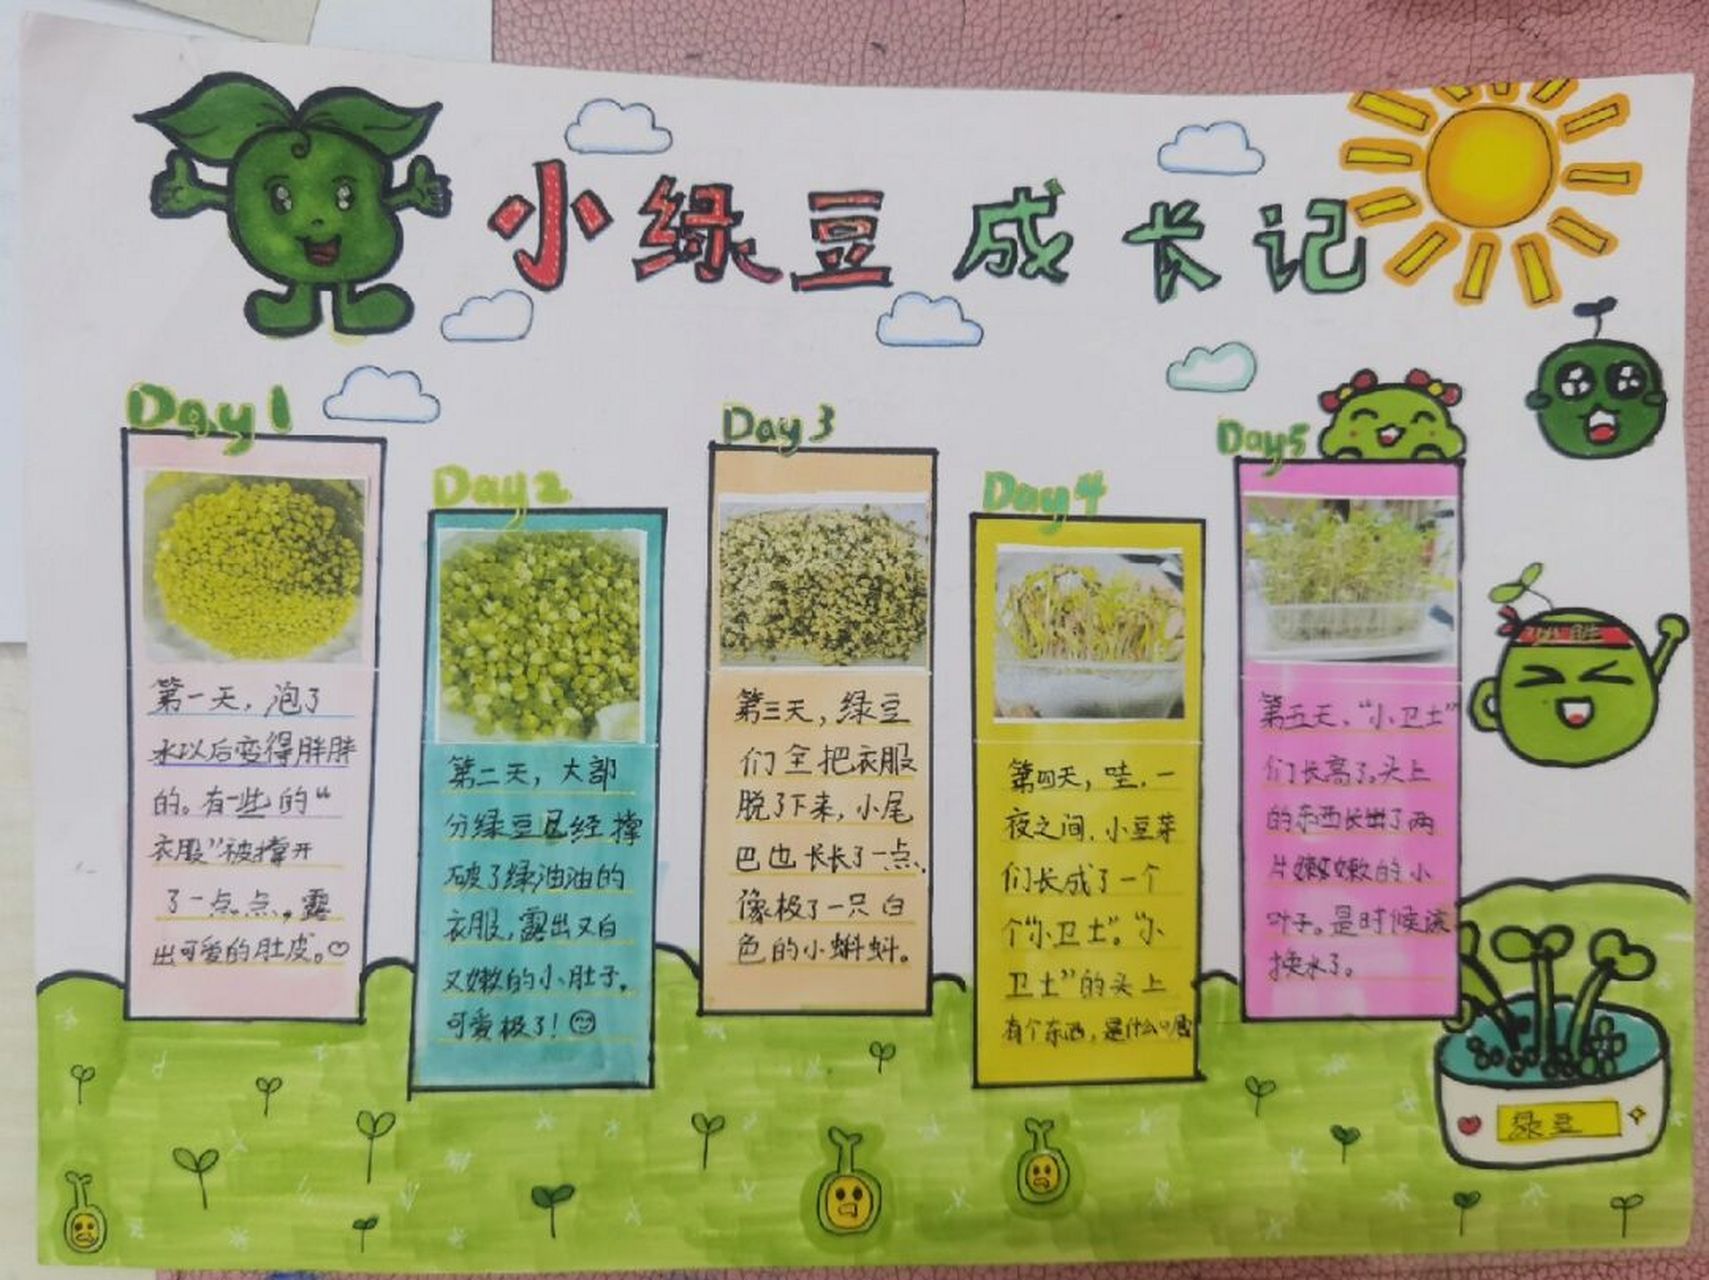 小绿豆成长记
Day1
第一天，泡了
水以后变得胖胖
的。有一些的“
衣服”被撑开
了一点点，露
出可爱的肚皮。
Day2
第二天，大部
分绿豆已经撑
破了绿油油的
衣服，露出又白
又嫩的小肚子。
可爱极了！
Day3
第三天，绿豆
们全把衣服
脱了下来，小尾
巴也长长了一点、
像极了一只白
色的小蝌蚪。
Day4
第四天，哇，一
夜之间，小豆芽
们长成了一个
个“小卫士”。“小
卫士”的头上
有个东西，是什么呢
Day5
第五天，“小卫士”
们长高了。头上
的东西长出了两
片嫩嫩的小
叶子。是时候该
换水了。
绿豆